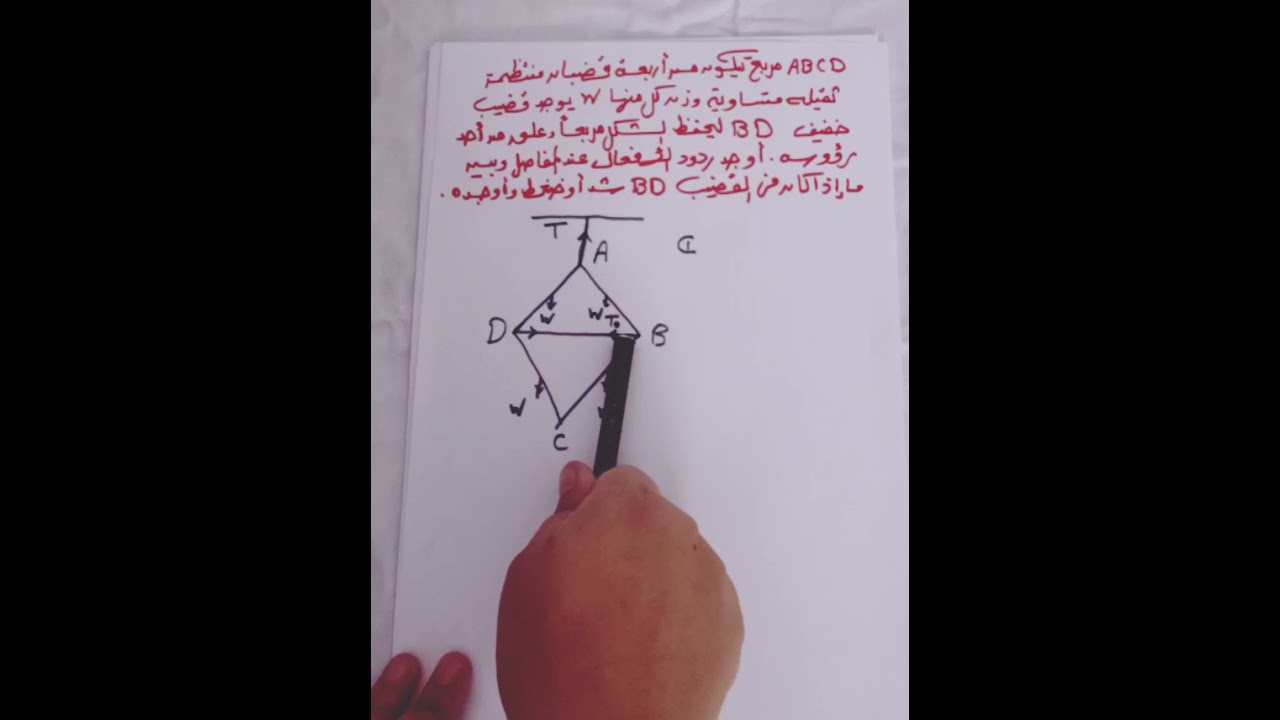 ABCD مربع يتكون من أربعة قضبان منتظمة
ثقيلة متساوية وزن كل منها W يوجد قضيب
خفيف BD ليحفظ الشكل مربعاً وعلق من أحد
رؤوسه. أوجد ردود الأفعال عند المفاصل وبين
ما إذا كان في القضيب BD شد أو ضغط وأوجده.
T
A
W
W
T₀
D
B
W
C